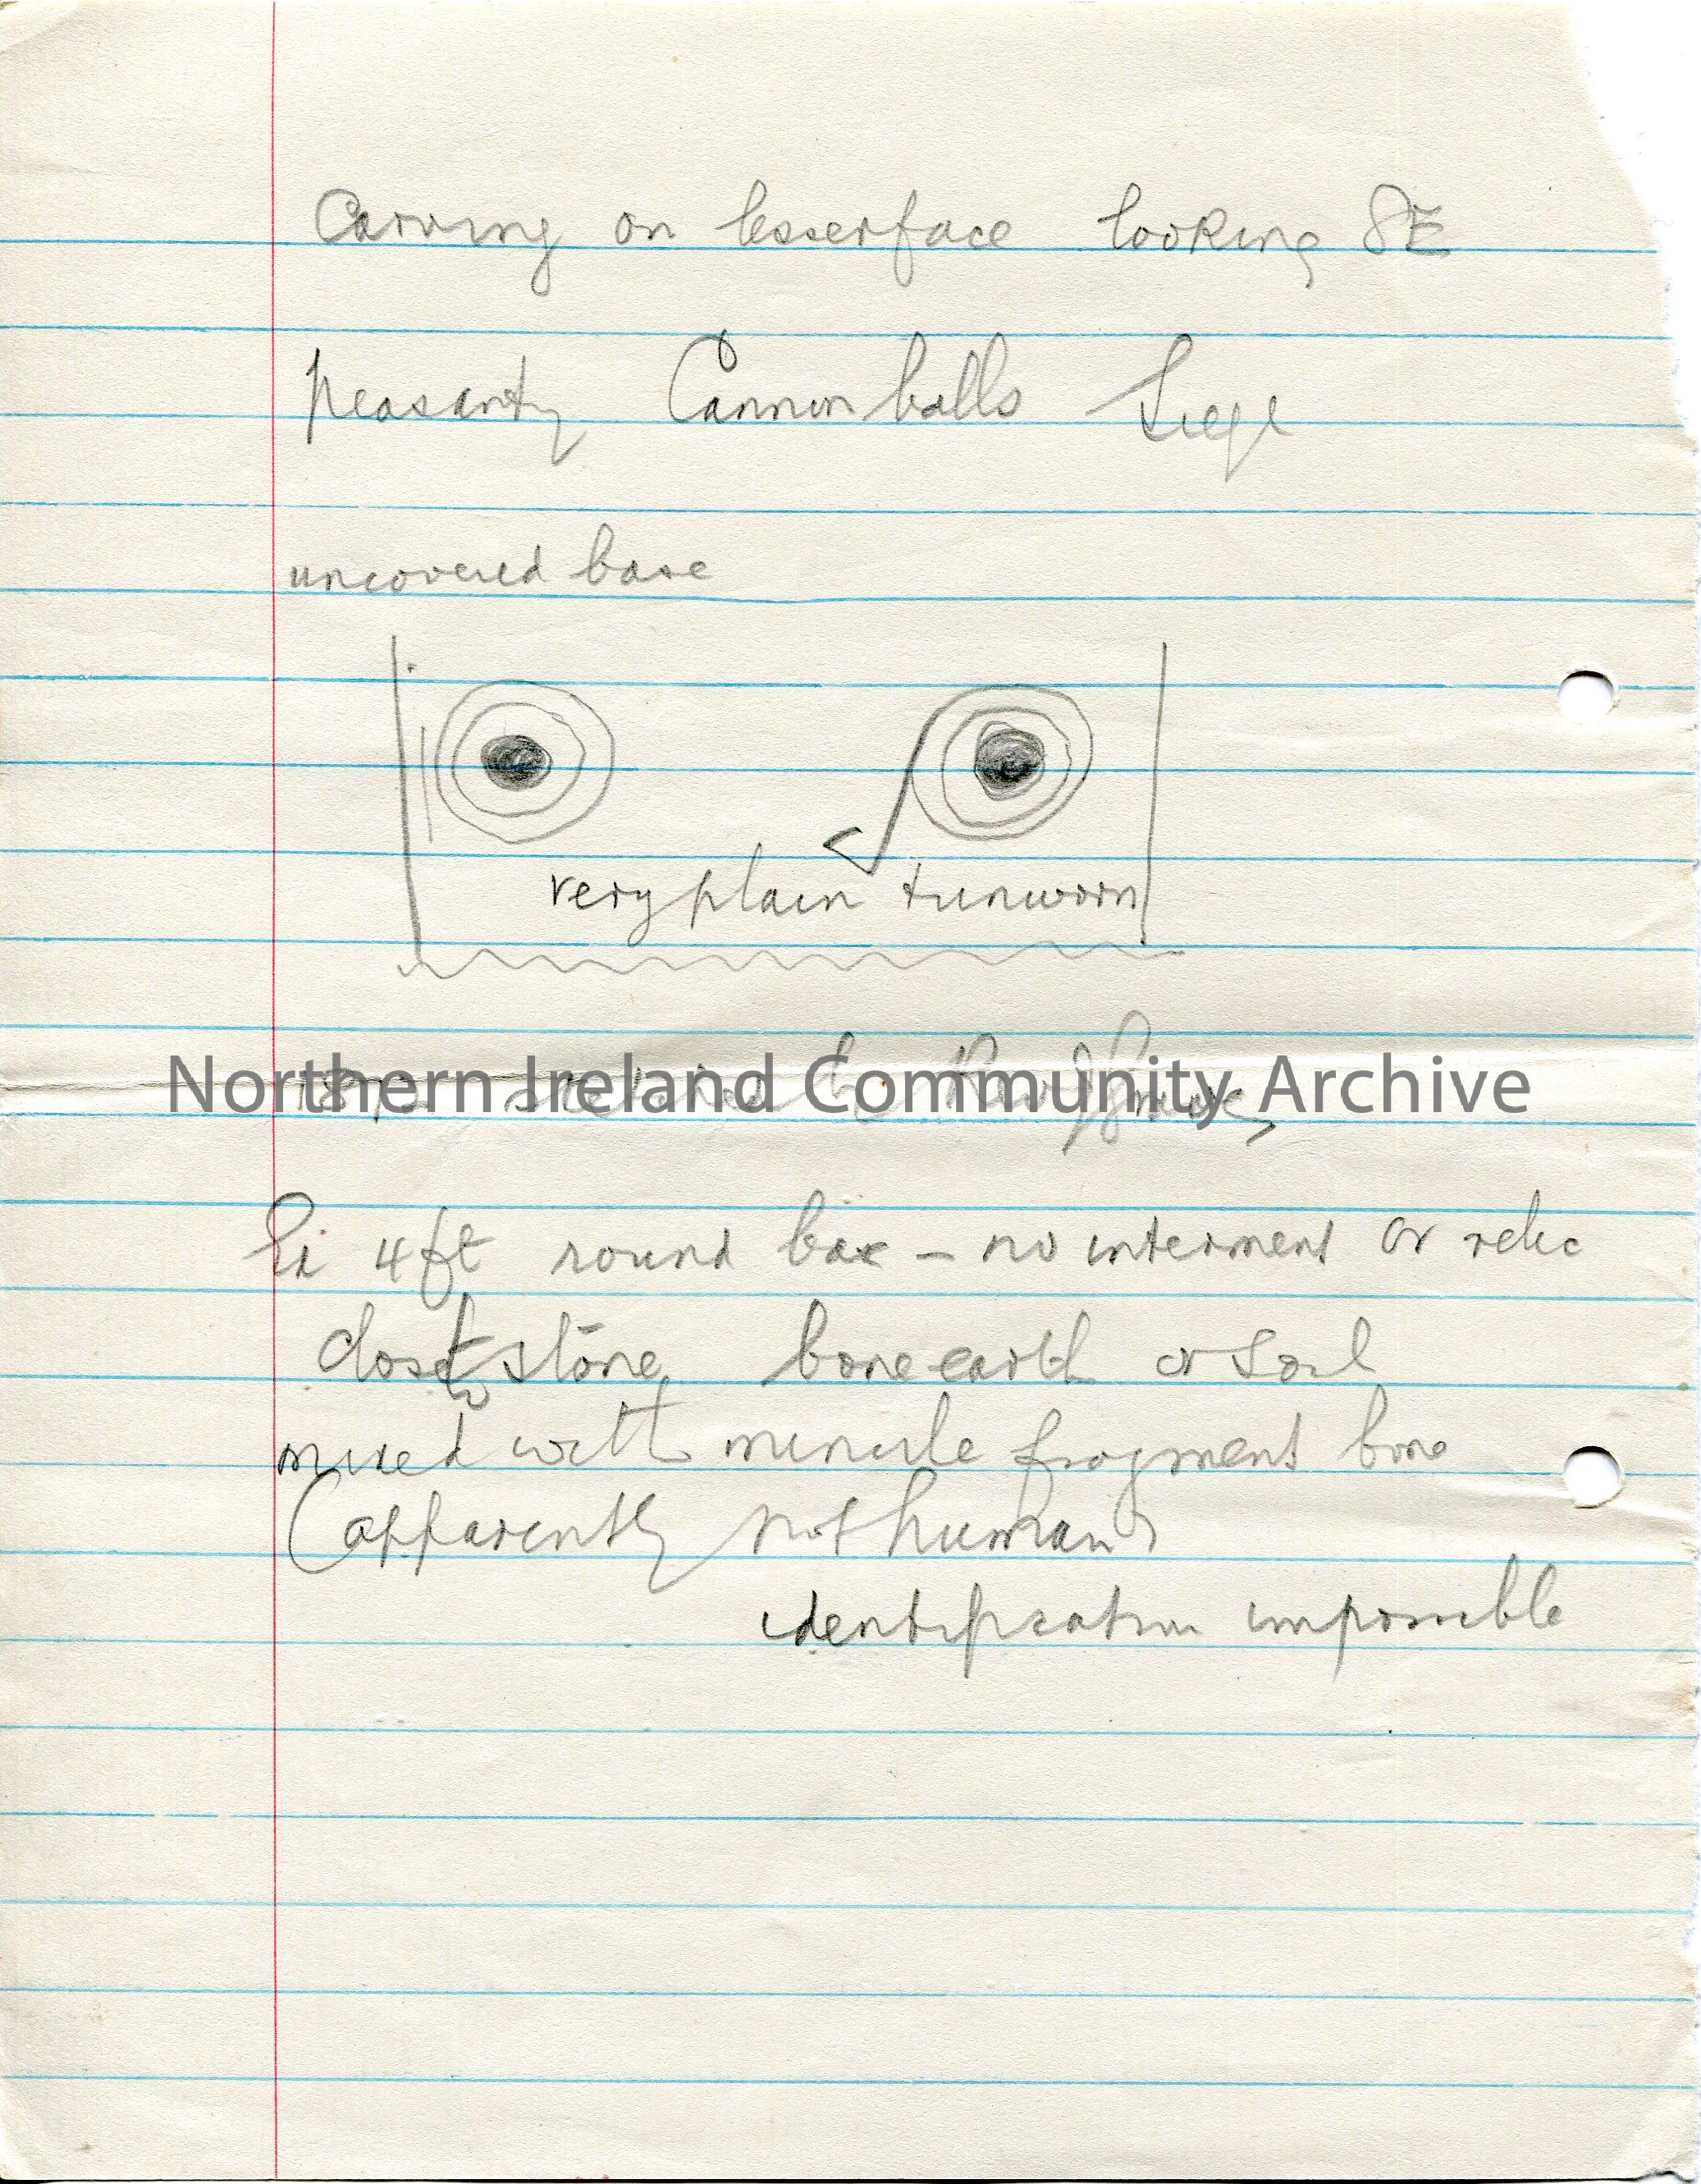 Carving on lesserface looking SE
peasantry Cannon balls Siege
uncovered base
very plain + unworn
Northern Ireland Community Archive
4ft round base – no interment or relic
close to stone bone earth or soil
mixed with minute fragment bone
(apparently not human)
identification impossible